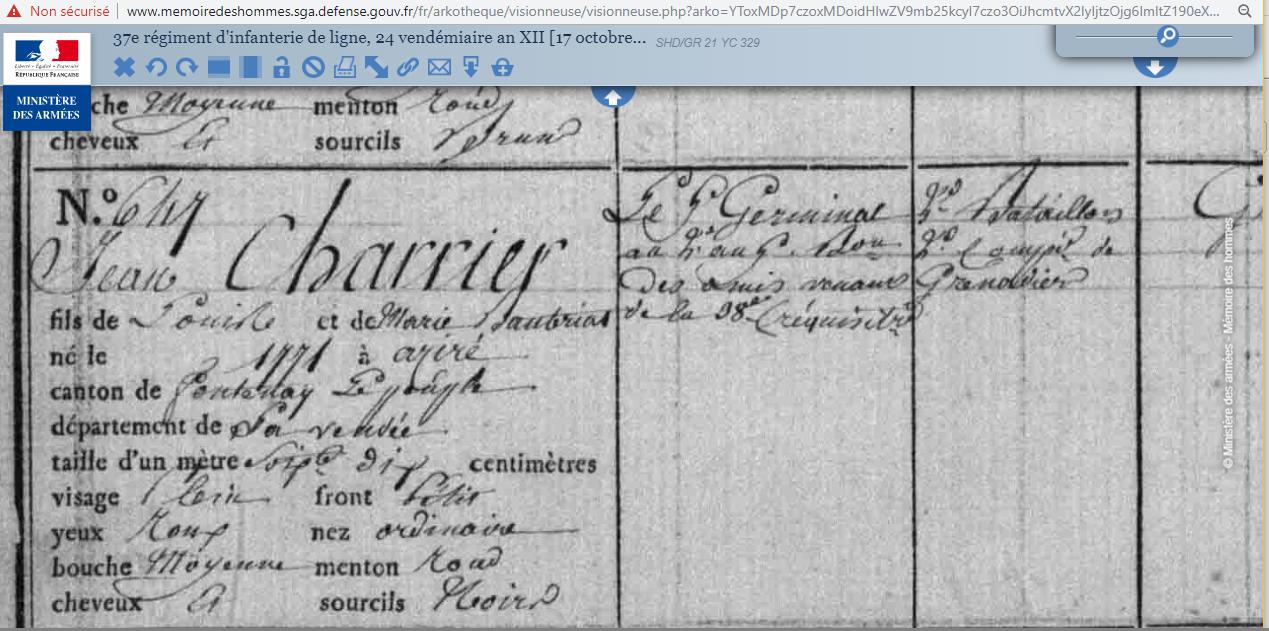 Non sécurisé | www.memoiredeshommes.sga.defense.gouv.fr/fr/arkotheque/visionneuse/visionneuse.php?arko=YToxMDp7czoxMDoidHlwZV9mb25kcyI7czo3OiJhcmtvX2lyIjtzOjg6ImltZ190eX...
37e régiment d'infanterie de ligne, 24 vendémiaire an XII [17 octobre... SHD/GR 21 YC 329
Liberté • Égalité • Fraternité
RÉPUBLIQUE FRANÇAISE
MINISTÈRE
DES ARMÉES
che Moyenne menton rond
cheveux et sourcils brun
N.º 647
Jean Charrier
fils de Louis et de Marie
né le 1771 à aziré
canton de fontenay Le peuple
département de La vendée
taille d'un mètre soixte dix centimètres
visage plein front petit
yeux roux nez ordinaire
bouche Moyenne menton rond
cheveux et sourcils Noirs
Le Germinal
au
des venant
de la réquisition
2e Bataillon
2e Compie de
Grenadier
© Ministère des armées - Mémoire des hommes